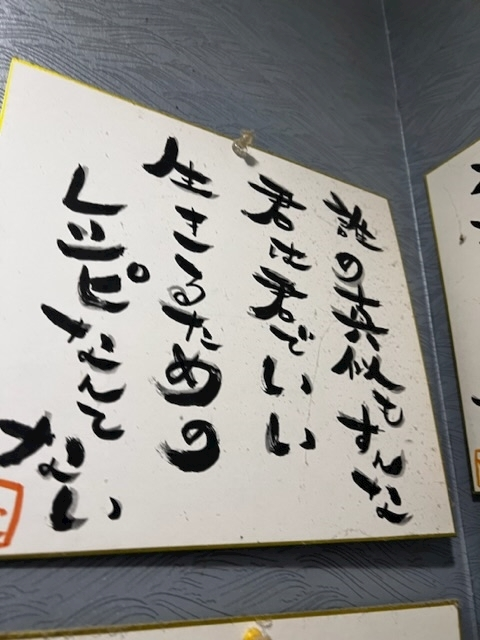 誰の真似もすんな
君は君でいい
生きるための
レシピなんてない